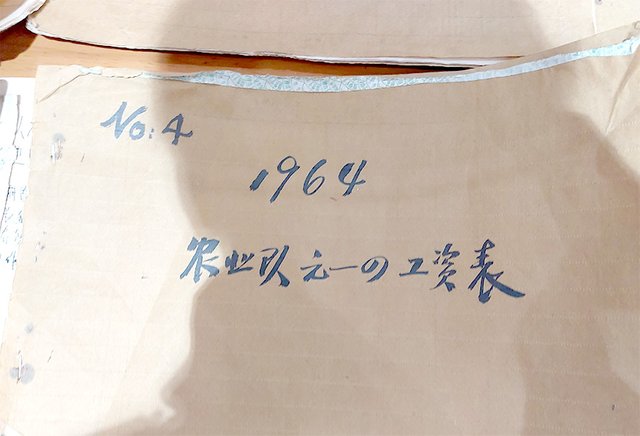 No: 4
1964
农业队元一の工资表